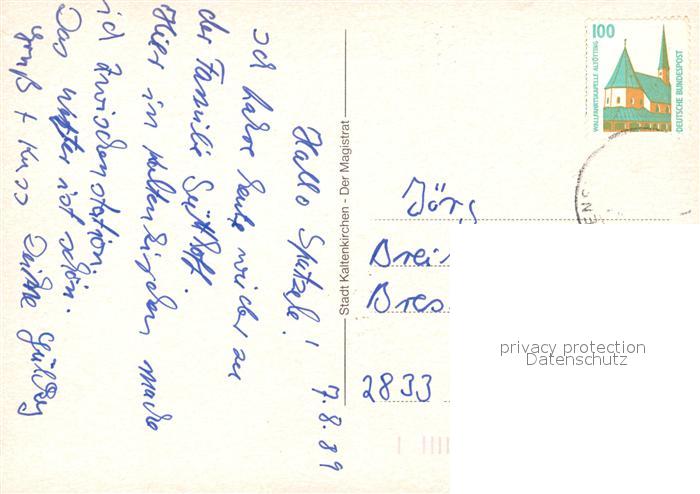 7.8.89
Hallo Spatzele!
Ich fahre heute wieder zu
der Familie
Hier in Kaltenkirchen mache
ich Zwischenstation.
Das Wetter ist schön.
Gruß + Kuss Deine
Stadt Kaltenkirchen - Der Magistrat
100
WALLFAHRTSKAPELLE ALTÖTTING
DEUTSCHE BUNDESPOST
ENS
Jörg
Brei
Bres
2833
privacy protection
Datenschutz